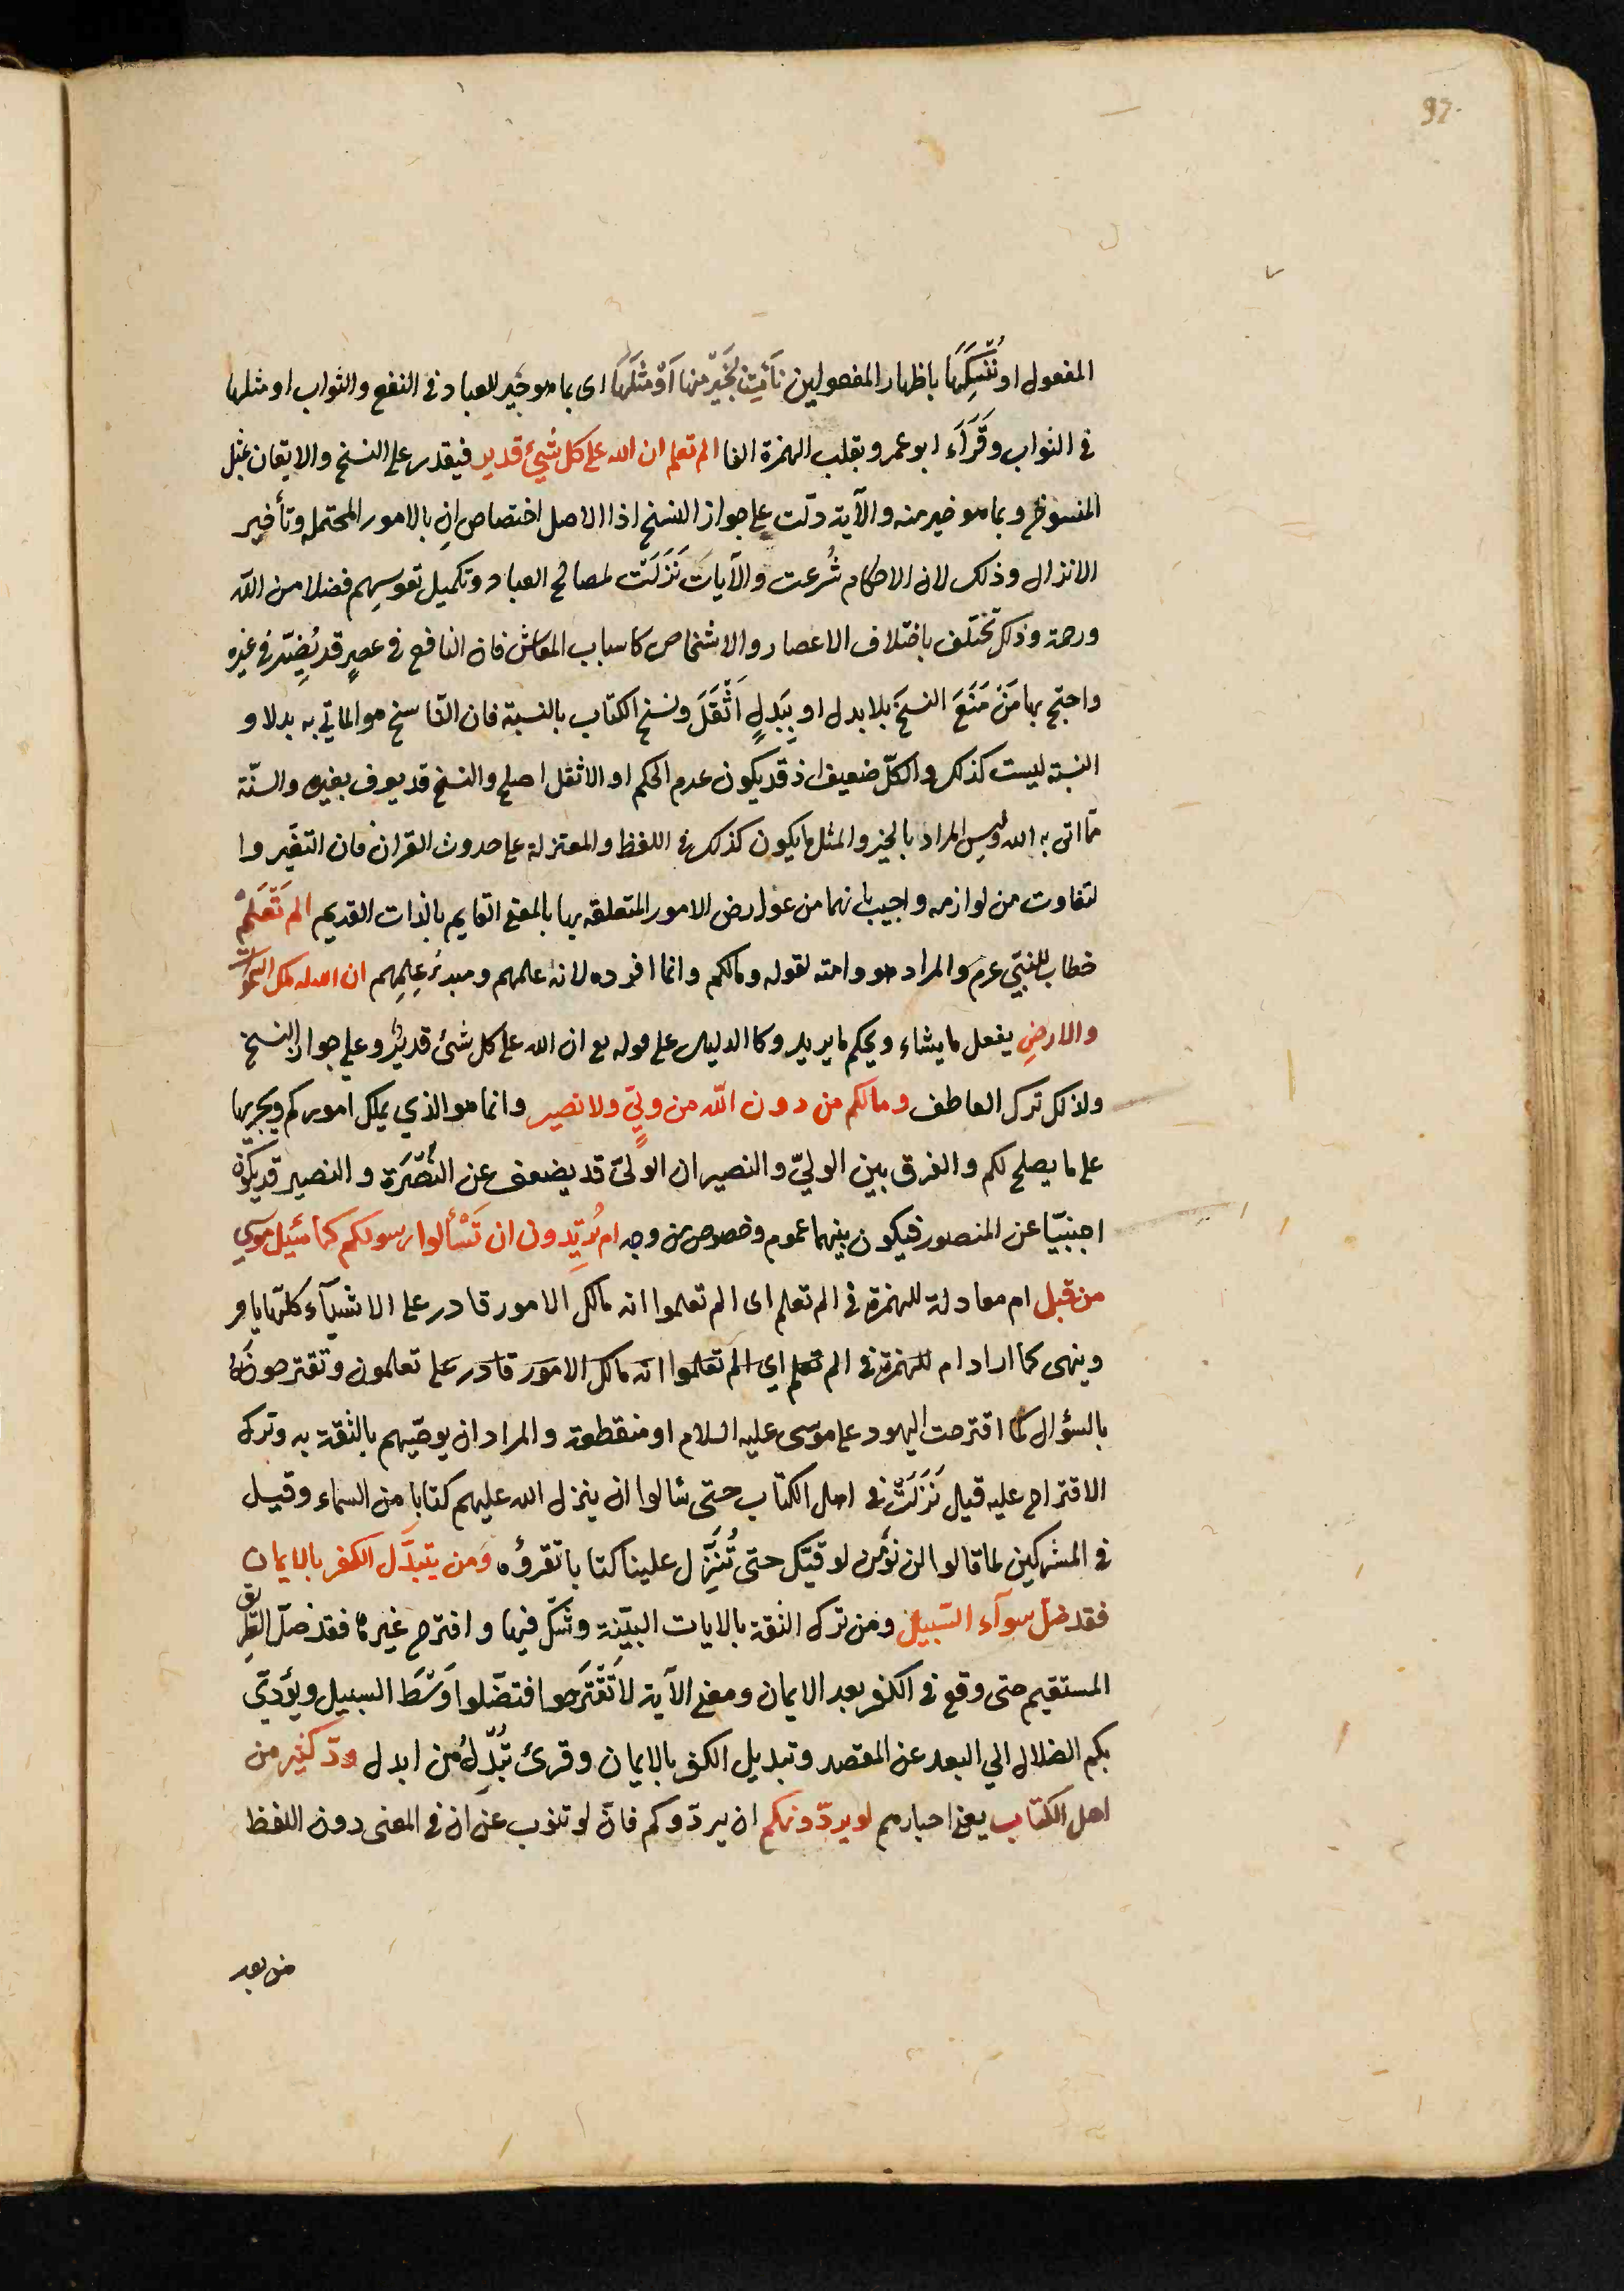 97.
المفعول او نُنْسِكَهَا باظهار المفعولين نَأْتِ بِخَيْرٍ منها اَوْ مِثْلِهَا اى بما هو خير للعباد فى النفع والثواب او مثلها
فى الثواب وقَرَأَ ابو عمرو بقلب الهمزة الفا الم تعلم ان الله على كل شيئ قدير فيقدر على النسخ والاتيان بمثل
المنسوخ وبما هو خير منه والآية دلت على جواز النسخ اذ الاصل اختصاص اِن بالامور المحتملة وتأخير
الانزال وذلك لان الاحكام شُرعت والآيات نَزَلَتْ لمصالح العباد وتكميل نفوسهم فضلا من الله
ورحمة وذلك تختلف باختلاف الاعصار والاشخاص كاسباب المعاش فان النافع فى عصرٍ قد يُضِرّ فى غيره
واحتج بها مَنْ مَنَعَ النسخَ بلا بدل او بِبَدلٍ اَثْقَلَ ونسخ الكتاب بالنسبة فان الناسخ هو الماتي به بدلا و
النسبة ليست كذلك والكلّ ضعيف اذ قد يكون عدم الحكم او الاثقل اصلح والنسخ قد يعرف بغيره والسنّة
ممّا اتى به الله وليس المراد بالخير والمثل ما يكون كذلك فى اللفظ والمعتزلة على حدوث القران فان التغيّر وا
لتفاوت من لوازمه واجيب بانهما من عوارض الامور المتعلقة بها بالمعنى القايم بالذات القديم الم تَعْلَمْ
خطاب للنبيّ عرم والمراد هو وامته لقوله ومالكم وانما افرده لانه اعلمهم ومبدئ عِلمِهِم ان الله له ملك السموات
والارضِ يفعل ما يشاء ويحكم ما يريد وكا الدليل على قوله تع ان الله على كل شئ قديرٌ وعلى جواز النسخ
ولذلك ترك العاطف ومالكم من دون الله من وليٍّ ولا نصير وانما هو الذي يملك اموركم ويجريها
على ما يصلح لكم والفرق بين الوليّ والنصير ان الولىّ قد يضعف عن النُصْرَة والنصير قد يكون
اجنبيّا عن المنصور فيكون بينهما عموم وخصوص من وجه ام تُرِيدون ان تَسْألوا رسولكم كما سُئِل موسي
من قبل ام معادلة للهمزة فى الم تعلم اى الم تعلموا انه مالك الامور قادر على الاشيآء كلّها يامر
وينهى كما اراد ام للهمزة فى الم تعلم اي الم تعلموا انه مالك الامور قادر على تعلمون وتقترحون
بالسؤال كما اقترحت اليهود على موسى عليه السلام او منقطعة والمراد ان يوصّيهم بالثقة به وترك
الاقتراح عليه قيل نَزَلَتْ فى اهل الكتاب حتى سٔالوا ان ينزل الله عليهم كتابا من السماء وقيل
فى المشركين لما قالوا لن نؤمن لرقيّك حتى تُنَزِّل علينا كتابا تقرؤه ومن يتبدّل الكفر بالايمان
فقد ضلّ سوآء السّبيل ومن ترك الثقة بالايات البيّنة وشكّ فيها واقترح غيرها فقد ضلّ الطريق
المستقيم حتى وقع فى الكفر بعد الايمان ومعنى الآية لا تَقْتَرِحوا فتضلّوا وَسَطَ السبيل ويؤدّي
بكم الضلال الي البعد عن المقصد وتبديل الكفر بالايمان وقرئ تُبْدِلْ من ابدل ودّ كثير من
اهل الكتاب يعنى احبارهم لو يردّونكم ان يردّوكم فانّ لو تنوب عن اَن فى المعنى دون اللفظ
من بعد